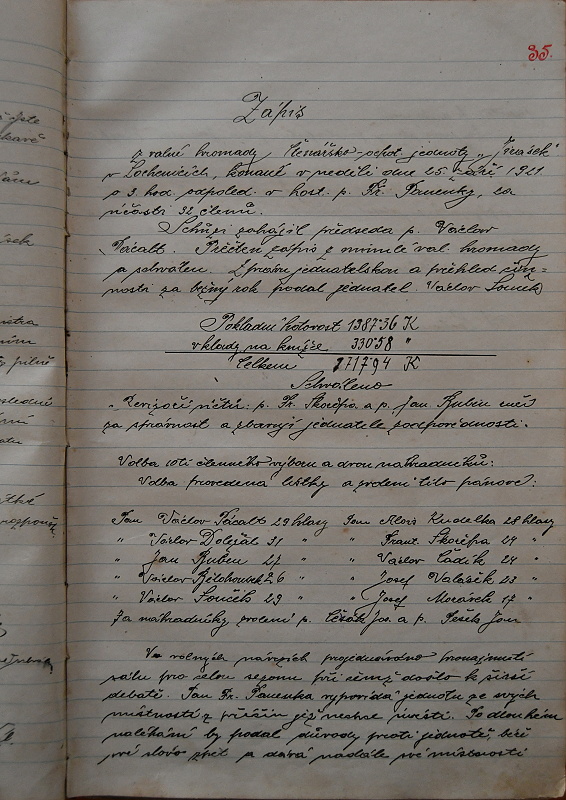 35.
Zápis
z valné hromady čtenářsko-ochot. jednoty „Jirásek"
v Lochenicích, konané v neděli dne 25. září 1921
o 3. hod. odpoled. v host. p. Fr. Panenky, za
účasti 32 členů.
Schůzi zahájil předseda p. Václav
Pácalt. Přečten zápis z minulé val. hromady
a schválen. Zprávu jednatelskou a přehled čin-
nosti za běžný rok podal jednatel Václav Souček
Pokladní hotovost 1387·36 K
vklady na knížce 330·58 "
Celkem 1717·94 K
Schváleno
Revizoři účtů: p. Fr. Skořepa a p. Jan Kubin
za správnost a zbavují jednatele zodpovědnosti.
Volba 10ti členného výboru a dvou náhradníků:
Volba provedena lístky a zvoleni tito pánové:
Pan Václav Pácalt 29 hlasy Pan Alois Kudelka 28 hlasy
" Václav Doležal 31 " " Frant. Skořepa 29 "
" Jan Kubin 27 " " Václav Čudík 24 "
" Václav Bělohousek 26 " Josef Valášek 23 "
" Václav Souček 29 " Josef Morávek 17 "
Za náhradníky zvoleni p. Jos. a p. Pešek Jan
Ve volných návrzích projednáváno pronajmutí
sálu pro celou sezonu při čemž došlo k širší
debatě. Pan Fr. Panenka vypovídá jednotu ze svých
místností z příčin jež nechce uvésti. Po dlouhém
naléhání by podal důvody proti jednotě, béře
své slovo zpět a dává nadále své místnosti